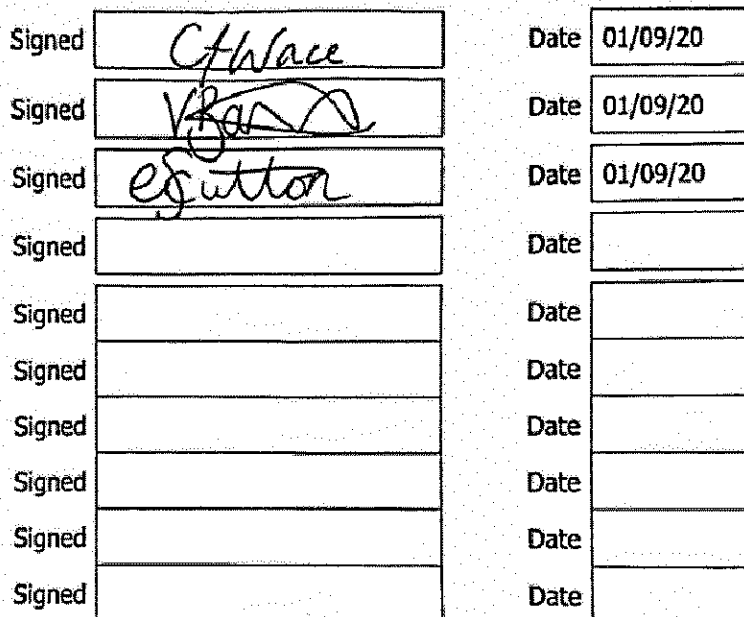 Signed CHWace Date 01/09/20
Signed Date 01/09/20
Signed Sutton Date 01/09/20
Signed Date
Signed Date
Signed Date
Signed Date
Signed Date
Signed Date
Signed Date